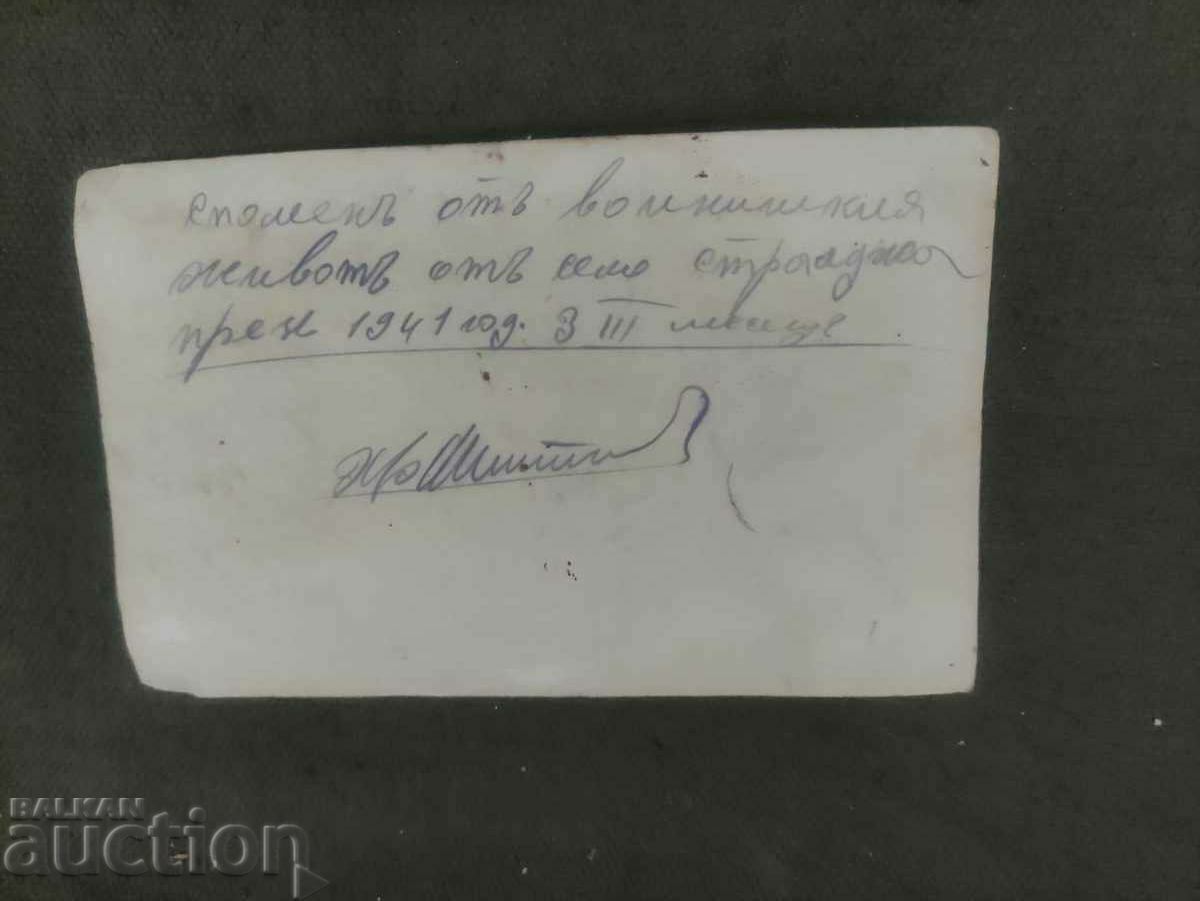 споменъ отъ воинишкия
животъ отъ село страджа
през 1941 год. 3 III месеце
BALKAN
auction